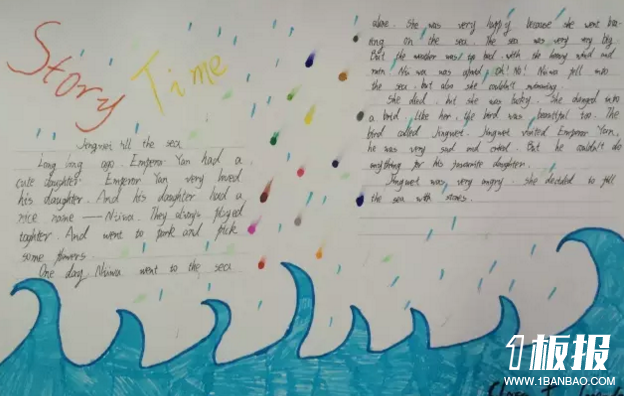 Story Time
Jingwei fill the sea
Long long ago. Emperor Yan had a
cute daughter. Emperor Yan very loved
his daughter. And his daughter had a
nice name — Nüwa. They always played
toghter. And went to park and pick
some flowers.
One day, Nüwa went to the sea
alone. She was very happy because she went boa-
ting on the sea. The sea was very very big.
But the weather was so bad, with the heavy wind and
rain. Nüwa was afraid, Oh! No! Nüwa fell into
the sea. but also she couldn't swimming.
She died. but she was lucky. She changed into
a bird. Like her, the bird was beautiful too. The
bird called Jingwei. Jingwei visited Emperor Yan,
he was very sad and cried. But he couldn't do
anything for his favourite daughter.
Jingwei was very angry. she decided to fill
the sea with stones.
1板报
WWW.1BANBAO.COM